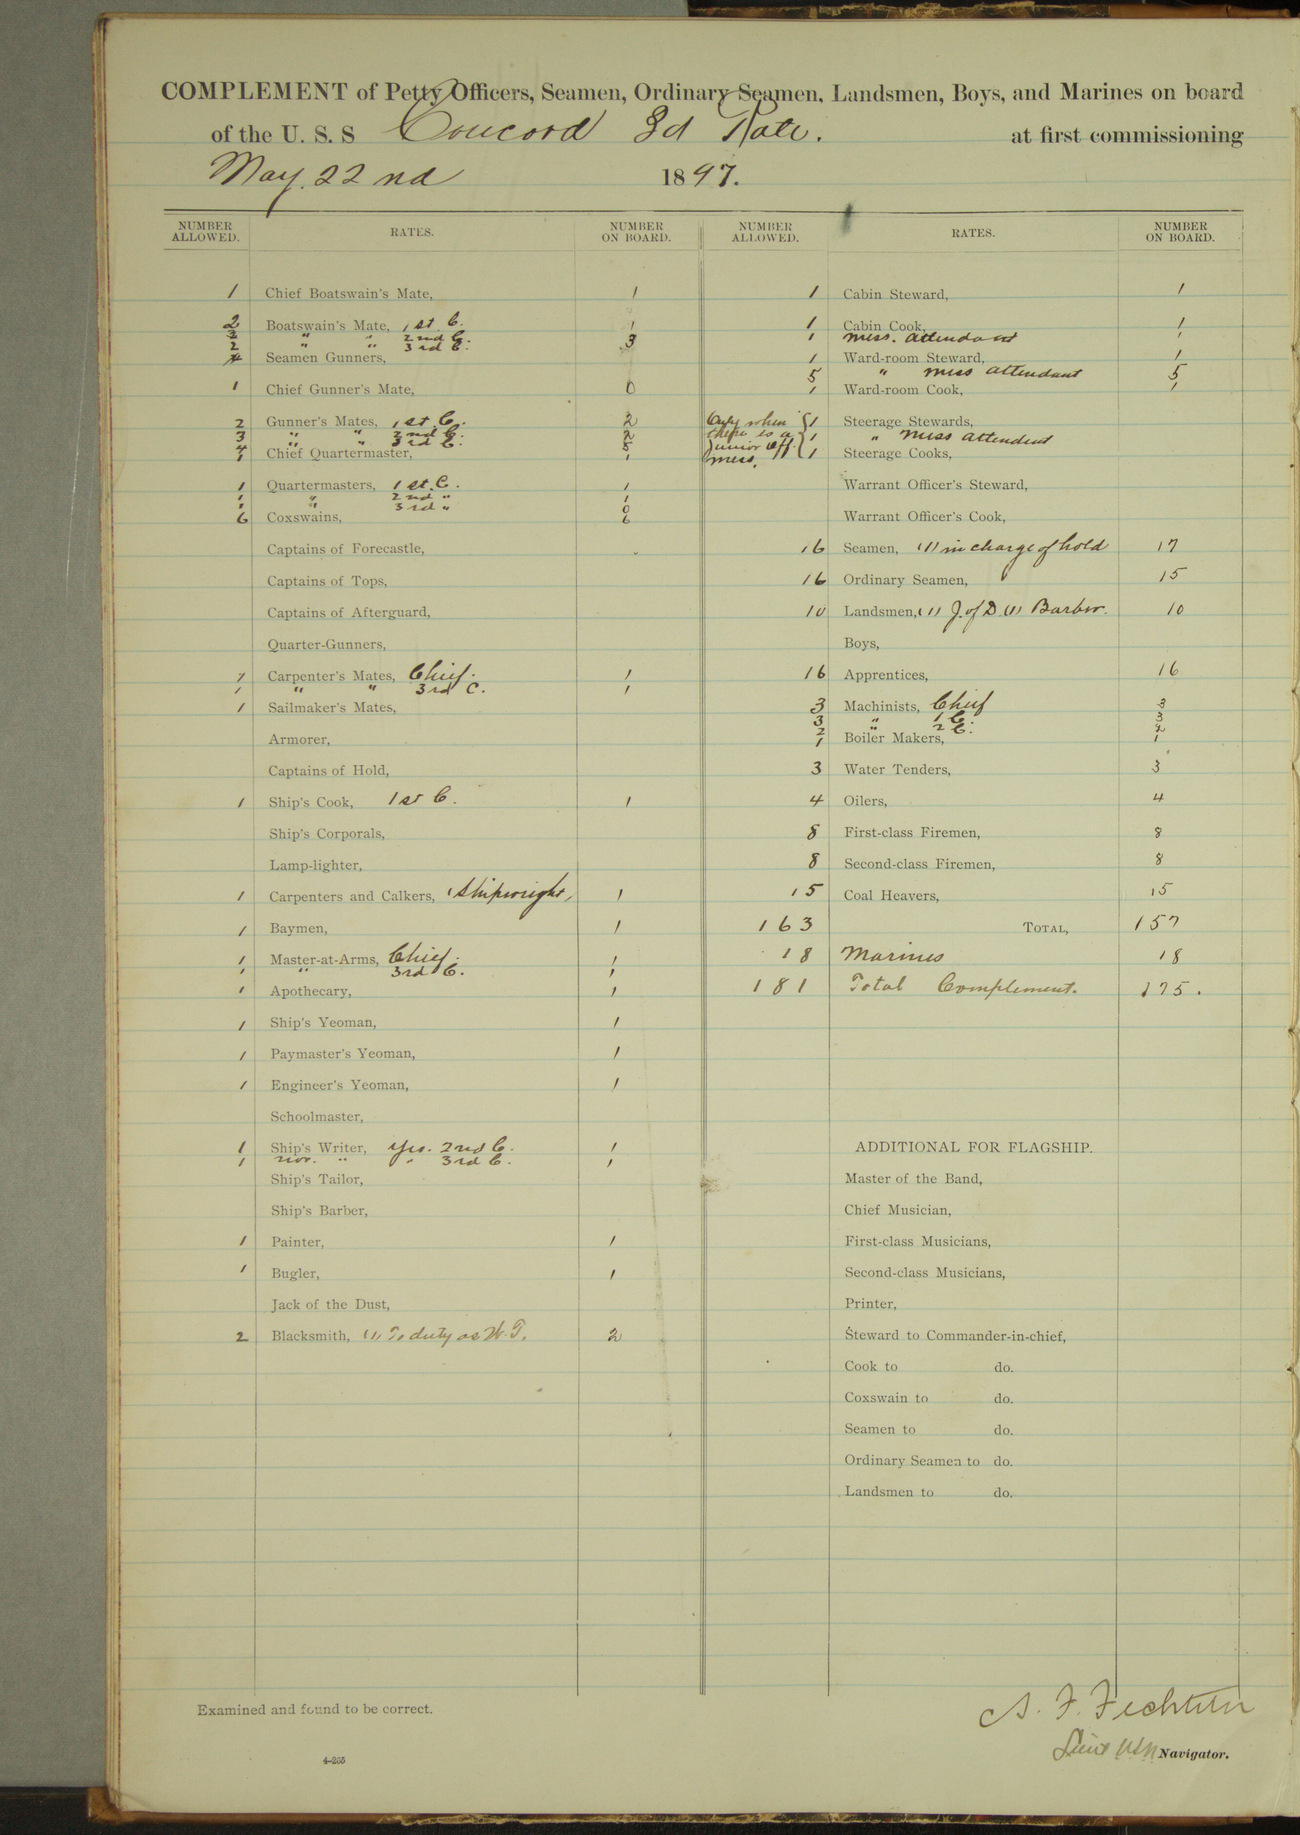 COMPLEMENT of Petty Officers, Seamen, Ordinary Seamen, Landsmen, Boys, and Marines on board
of the U. S. S Concord 3d Rate. at first commissioning
May. 22nd 1897.
NUMBER ALLOWED. RATES. NUMBER ON BOARD.
1 Chief Boatswain's Mate, 1
2 Boatswain's Mate, 1st C. 1
2 " " 2nd C. 3
2 " " 3rd C.
Seamen Gunners,
1 Chief Gunner's Mate, 0
2 Gunner's Mates, 1st C. 2
3 " " 2nd C. 2
4 " " 3rd C. 5
1 Chief Quartermaster, 1
1 Quartermasters, 1st. C. 1
1 " 2nd " 1
1 " 3rd " 0
6 Coxswains, 6
Captains of Forecastle,
Captains of Tops,
Captains of Afterguard,
Quarter-Gunners,
1 Carpenter's Mates, Chief. 1
1 " " 3rd C. 1
1 Sailmaker's Mates,
Armorer,
Captains of Hold,
1 Ship's Cook, 1st C. 1
Ship's Corporals,
Lamp-lighter,
1 Carpenters and Calkers, (Shipwright) 1
1 Baymen, 1
1 Master-at-Arms, Chief. 1
1 " 3rd C. 1
1 Apothecary, 1
1 Ship's Yeoman, 1
1 Paymaster's Yeoman, 1
1 Engineer's Yeoman, 1
Schoolmaster,
1 Ship's Writer, Yeo. 2nd C. 1
1 " " 3rd C. 1
Ship's Tailor,
Ship's Barber,
1 Painter, 1
1 Bugler, 1
Jack of the Dust,
2 Blacksmith, (1) To duty as W.T. 2
NUMBER ALLOWED. RATES. NUMBER ON BOARD.
1 Cabin Steward, 1
1 Cabin Cook, 1
1 mess. attendant 1
1 Ward-room Steward, 1
5 " mess attendant 5
1 Ward-room Cook, 1
Only when 1 Steerage Stewards,
there is a 1 " mess attendent
Junior Off. 1 Steerage Cooks,
mess.
Warrant Officer's Steward,
Warrant Officer's Cook,
16 Seamen, (1) in charge of hold 17
16 Ordinary Seamen, 15
10 Landsmen, (1) J. of D (1) Barber. 10
Boys,
16 Apprentices, 16
3 Machinists, Chief 3
3 " 1 C. 3
2 " 2 C. 2
1 Boiler Makers, 1
3 Water Tenders, 3
4 Oilers, 4
8 First-class Firemen, 8
8 Second-class Firemen, 8
15 Coal Heavers, 15
163 TOTAL, 157
18 Marines 18
181 Total Complement. 175.
ADDITIONAL FOR FLAGSHIP.
Master of the Band,
Chief Musician,
First-class Musicians,
Second-class Musicians,
Printer,
Steward to Commander-in-chief,
Cook to do.
Coxswain to do.
Seamen to do.
Ordinary Seamen to do.
Landsmen to do.
Examined and found to be correct.
A. F. Fechteler
Lieut USN Navigator.
4—265